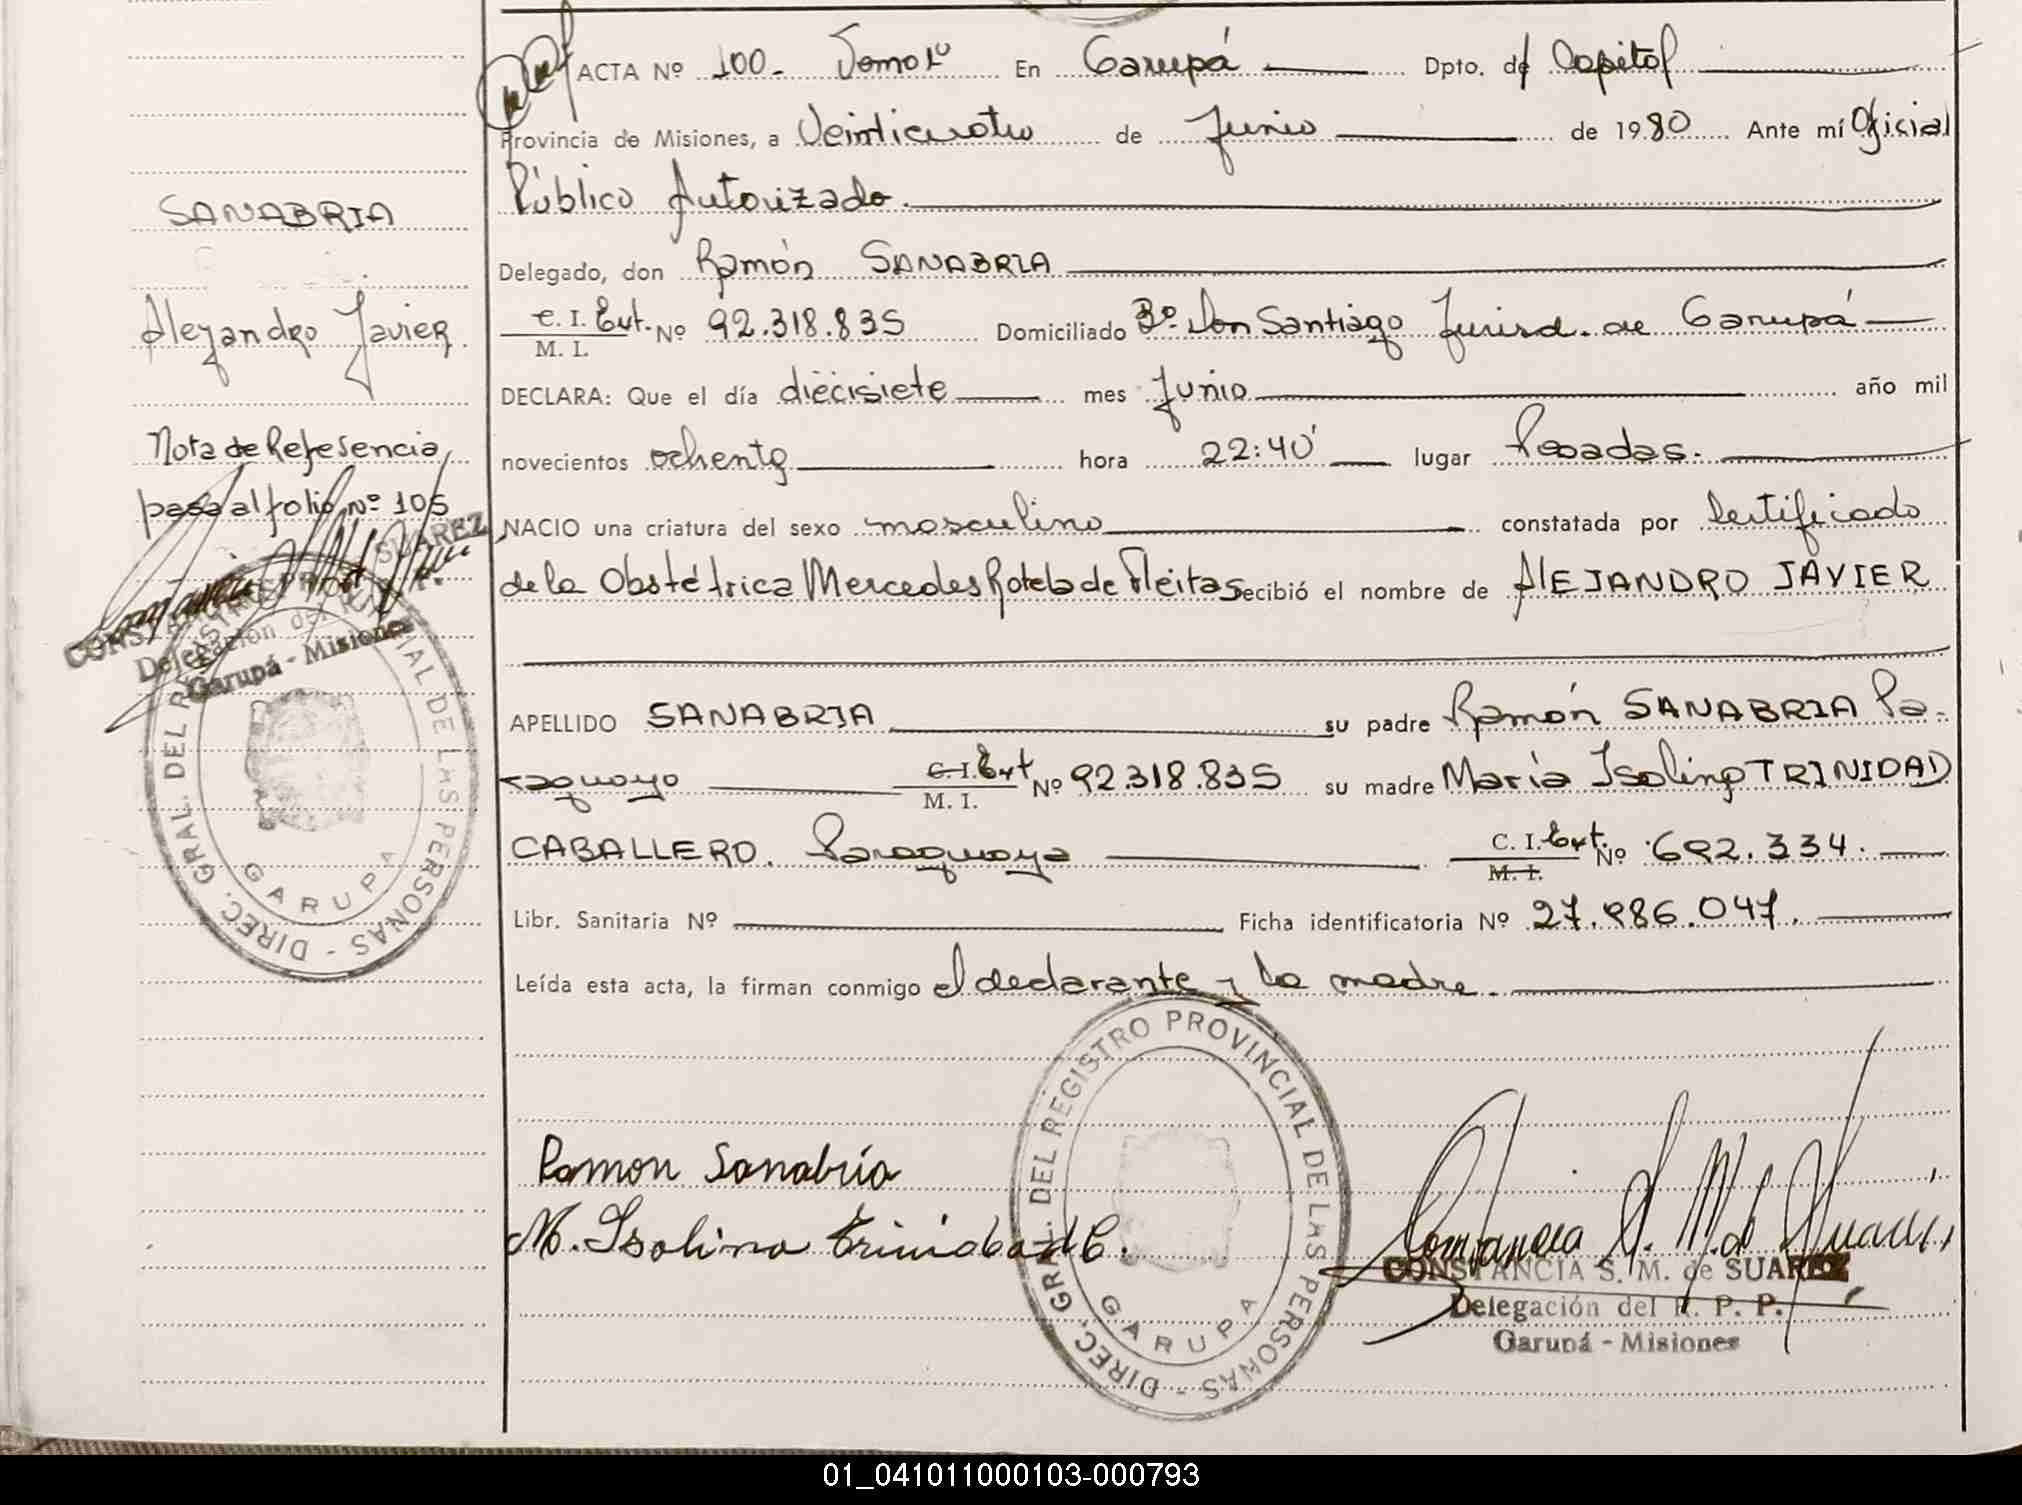 ACTA Nº 100. Tomo 1º En Garupá Dpto. de Capital
Provincia de Misiones, a Veinticuatro de Junio de 1980 Ante mí Oficial
Público Autorizado.
Delegado, don Ramón SANABRIA
C. I. Ext. Nº 92.318.835 Domiciliado Bº. Don Santiago Jurisd. de Garupá
M. I.
DECLARA: Que el día diecisiete mes Junio año mil
novecientos ochenta hora 22:40' lugar Posadas.
NACIO una criatura del sexo masculino constatada por Certificado
de la Obstétrica Mercedes Rotela de Fleitas recibió el nombre de ALEJANDRO JAVIER
APELLIDO SANABRIA su padre Ramón SANABRIA Pa-
raguayo C. I. Ext Nº 92.318.835 su madre María Isolina TRINIDAD
M. I.
CABALLERO. Paraguaya C. I. Ext. Nº 692.334.
M. I.
Libr. Sanitaria Nº Ficha identificatoria Nº 27.986.047.
Leída esta acta, la firman conmigo el declarante y la madre.
Ramon Sanabria
M. Isolina Trinidad C.
DIREC. GRAL. DEL REGISTRO PROVINCIAL DE LAS PERSONAS -
GARUPA
CONSTANCIA S. M. de SUAREZ
Delegación del R. P. P.
Garupá - Misiones
SANABRIA
Alejandro Javier
Nota de Referencia
pasa al folio Nº 105
CONSTANCIA SUAREZ
Delegación del
Garupá - Misiones
DIREC. GRAL. DEL REGISTRO PROVINCIAL DE LAS PERSONAS -
GARUPA
01_041011000103-000793